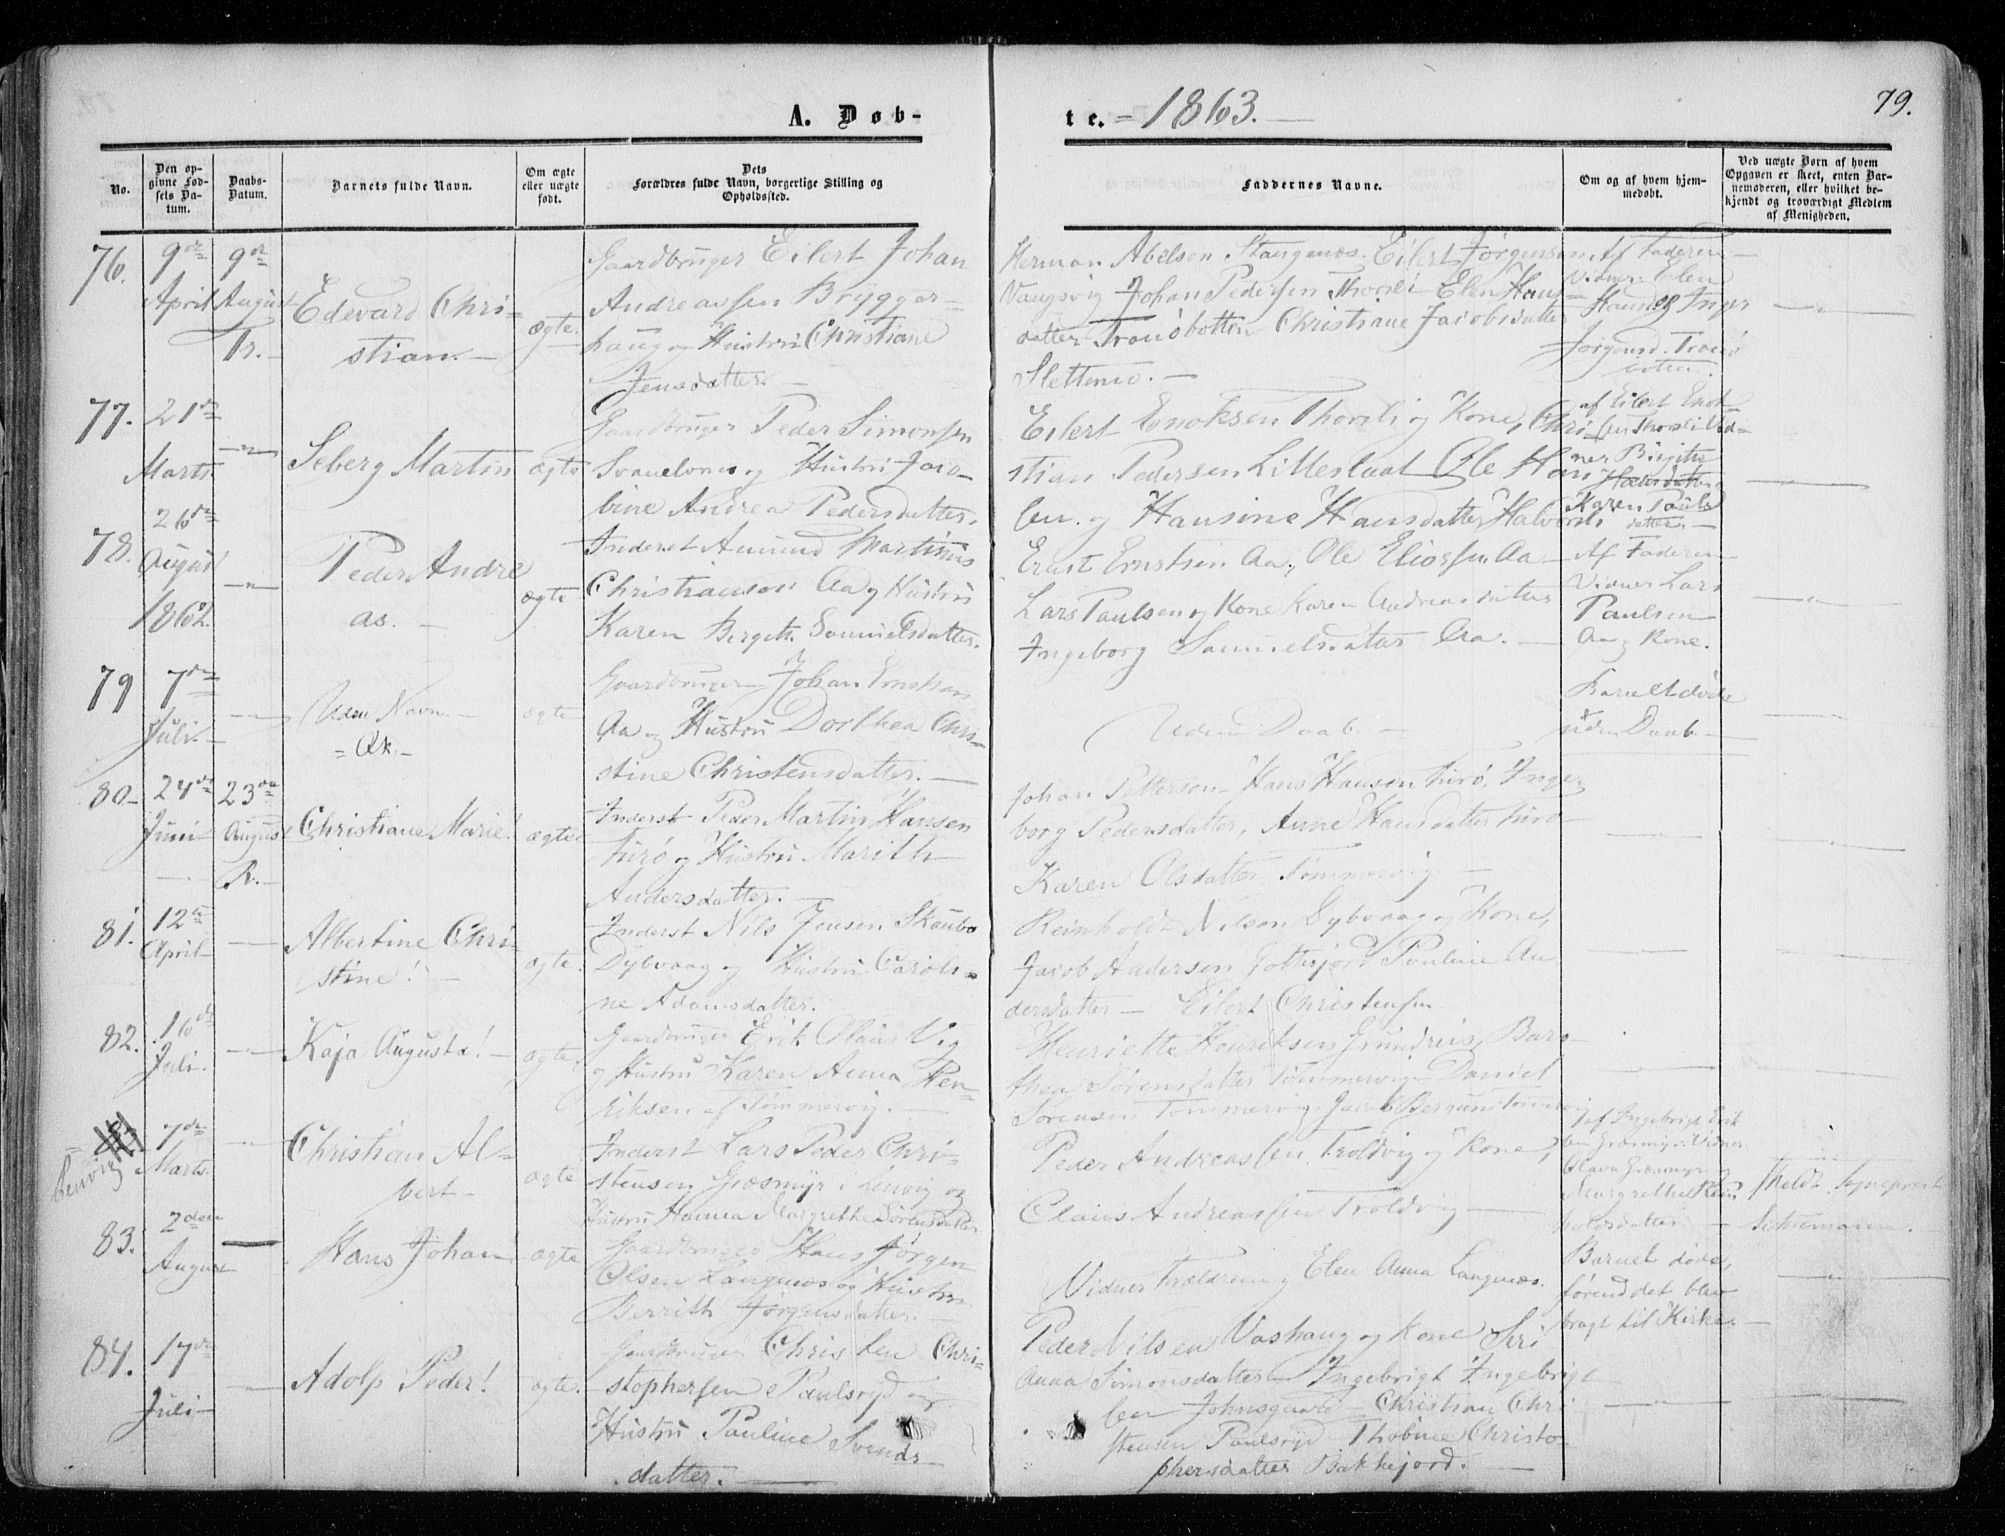 A. Døb-
te. - 1863. -
79.
No.
Den op-
givne Fød-
sels Da-
tum.
Daabs-
Datum.
Barnets fulde Navn.
Om ægte
eller uægte
født.
Dets
Forældres fulde Navn, borgerlige Stilling og
Opholdssted.
Faddernes Navne.
Om og af hvem hjem-
medøbt.
Ved uægte Børn af hvem
Opgaven er skeet, enten Bar-
nemoderen, eller hvilket be-
kjendt og troværdigt Medlem
af Menigheden.
76.
9de
April
9de
August
Tr.
Edevard Chri-
stian.
ægte
Gaardbruger Eilert Johan
Andreassen Brygger-
haug og Hustru Christiane
Jensdatter.
Herman Abelsen Stangenæs. Eilert Jørgensen
Vangsvig Johan Pedersen Thorsli Elen Hans-
datter Tranøbotten Christiane Jacobsdatter
Slettenes.
Af Faderen
Vidner: Elen
Hansd. og Inger
Jørgensd. Tranø
botten.
77.
21de
Marts.
Seberg Martin
ægte
Gaardbruger Peder Simonsen
og Hustru Jaco-
bine Andrea Pedersdatter.
Eilert Enoksen Thorsli og Kone, Chri-
stian Pedersen Ole Han
sen og Hansine Hansdatter
af Eilert Enok-
sen Thorsli Vid-
ner Birgitte
Hansdatter
Karen Pauls
datter
78.
26de
August
1862.
Peder Andre
as.
ægte
Inderst Amund Martinus
Christiansen Aa og Hustru
Karen Birgith. Samuelsdatter.
Ernst Ernstsen Aa, Ole Eliassen Aa
Lars Paulsen og Kone Karen Andreasdatter
Ingeborg Samuelsdatter Aa.
Af Faderen
Vidner Lars
Paulsen
Aa og Kone.
79
7de
Juli.
Uden Navn.
= Qk. -
ægte
Gaardbruger Johan Ernstsen
Aa og Hustru Dorthea Chri-
stine Christensdatter.
Uden Daab.
Barnet døde
uden Daab.
80
24de
Juni
23de
August
R.
Christiane Marie!
ægte
Inderst Peder Martin Hansen
Furø og Hustru Marith
Andersdatter.
Johan Pettersen Hans Hansen Furø, Inge-
borg Pedersdatter, Anne Hansdatter Furø
Karen Olsdatter Tømmervig
81.
12te
April
Albertine Chri-
stine!
ægte.
Inderst Nils Jensen Skoubo
Dybvaag og Hustru Caroli-
ne Adamsdatter.
Reinholdt Nilsen Dybvaag og Kone,
Jacob Andersen Gottesjord Pauline An
dersdatter Eilert Christensen
82.
16de
Juli.
Kaja Augusta!
ægte.
Gaardbruger Erik Olaus Vig
og Hustru Karen Anna Hen-
riksen af Tømmervig.
Henriette Henriksen Grundreis, Bar-
thea Sørensdatter Tømmervig Daniel
Sørensen Tømmervig. Jacob
7de
Marts.
Christian Al-
bert
ægte
Inderst Lars Peder Chri-
stensen Græsmyr i Lenvig og
Hustru Hanna Margrethe Sørensdatter
Peder Andreassen Troldvig og Kone,
Claus Andreassen Troldvig
af Ingebrigt Erik
sen Græsmyr. Vidner
Olava Græsmyr og
Margrethe
datter
Meldt Sognepræst
Schumann.
83.
2den
August
Hans Johan
ægte
Gaardbruger Hans Jørgen
Olsen Langnæs og Hustru
Berrith Jørgensdatter.
Vidner Forældrene og Elen Anna Langnæs.
Barnet døde,
førend det blev
bragt til Kirke.
84.
17de
Juli
Adolp Peder!
ægte.
Gaardbruger Christen Chri-
stophersen Paulsryd og
Hustru Pauline Svends-
datter.
Peder Nilsen Vashaug og Kone Siri
Anna Simonsdatter Ingebrigt Ingebrigt
sen Johnsgaard Christian Chri
stensen Paulsryd Thobine Christo-
phersdatter Bakkejord.